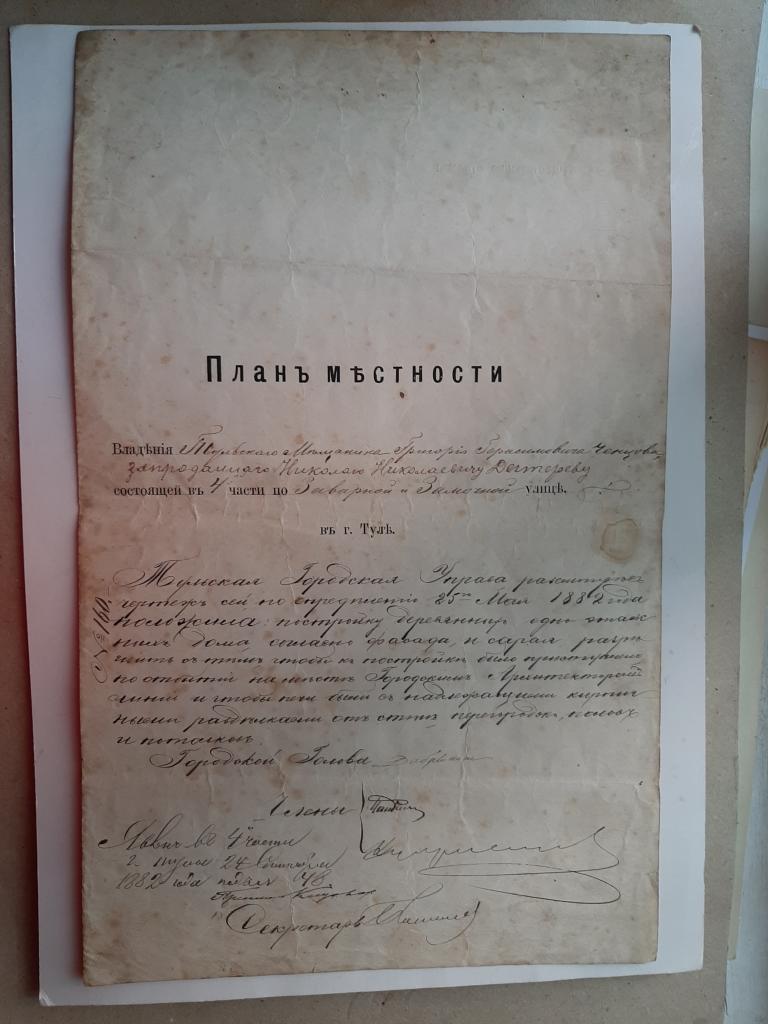 Планъ мѣстности
Владѣнія Тульскаго Мѣщанина Григорія Герасимовича Ченцова,
запроданнаго Николаю Николаевичу Дехтереву
состоящей въ 4 части по Заварной и Замочной улицѣ.
въ г. Тулѣ.
№ 160.
Тульская Городская Управа
чертежъ сей по опредѣленію 25го Мая 1882 года
положила: постройку деревяннаго одно этаж
наго дома, согласно фасада, и сарая разрѣ
шить съ тѣмъ чтобы къ постройкѣ было приступлено
по отбитіи на мѣстѣ Городскимъ Архитекторомъ
линіи и чтобы печи были съ надлежащими кирпич
ными раздѣлками отъ стѣнъ, перегородокъ, половъ
и потолковъ.
Городской Голова
Члены
Явленъ въ 4 части
2 24
1882 года 48
Секретарь